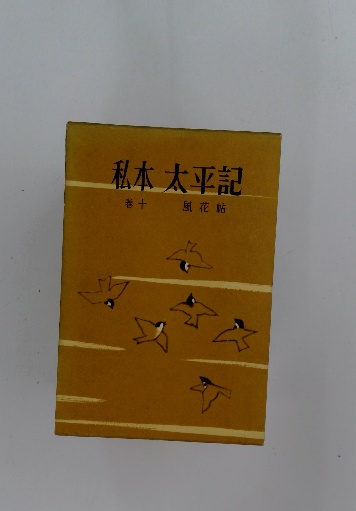 私本 太平記
巻十 風花帖